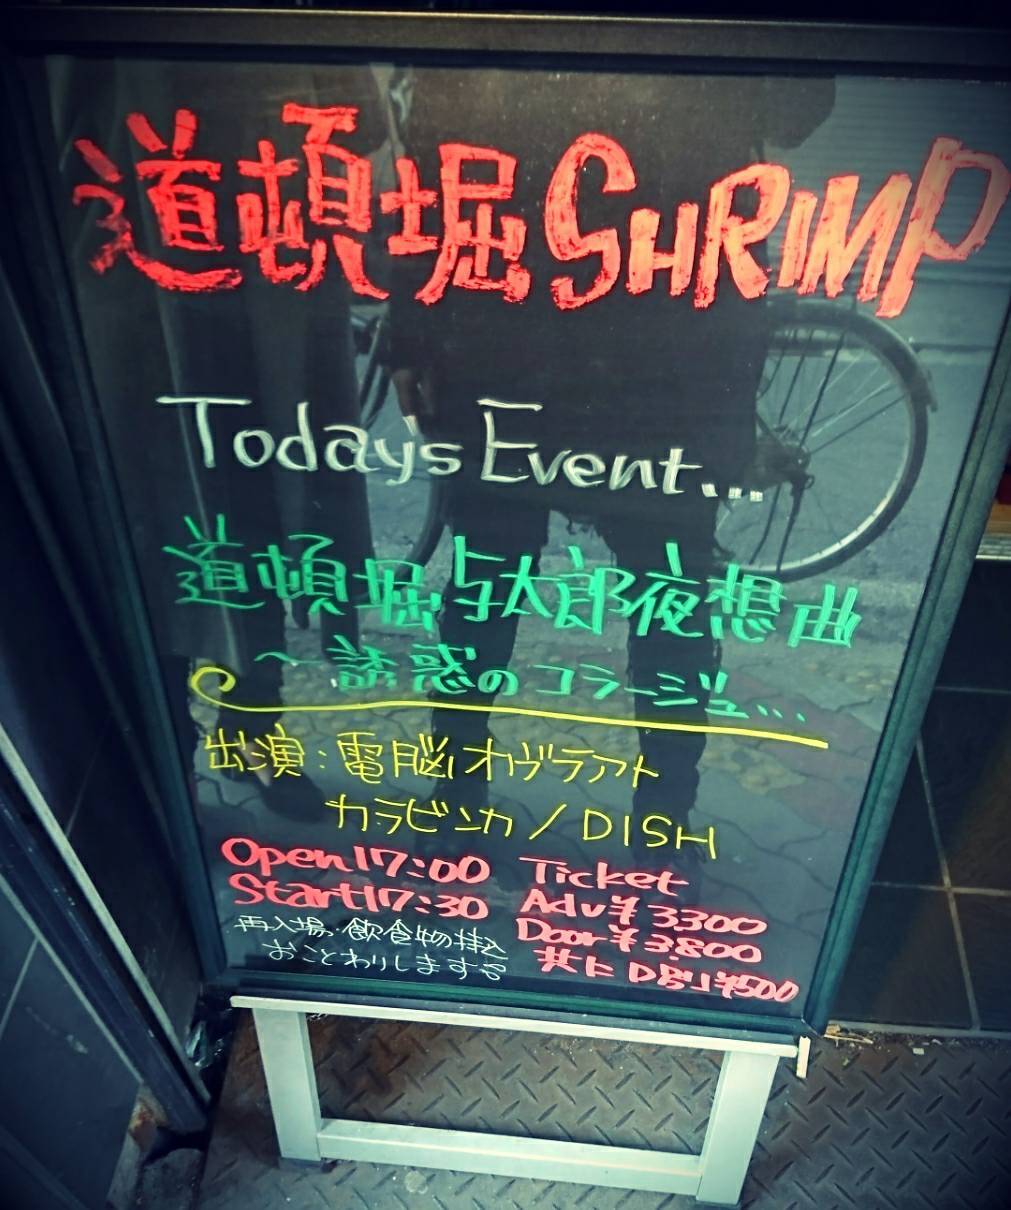 道頓堀SHRIMP
Today's Event...
道頓堀与太郎夜想曲
～誘惑のコラージュ...
出演：電脳オヴラアト
カラビンカ/DISH
Open17:00
Start17:30
再入場・飲食物持込
おことわりします
Ticket
Adv¥3300
Door¥3.800
共にD別¥500